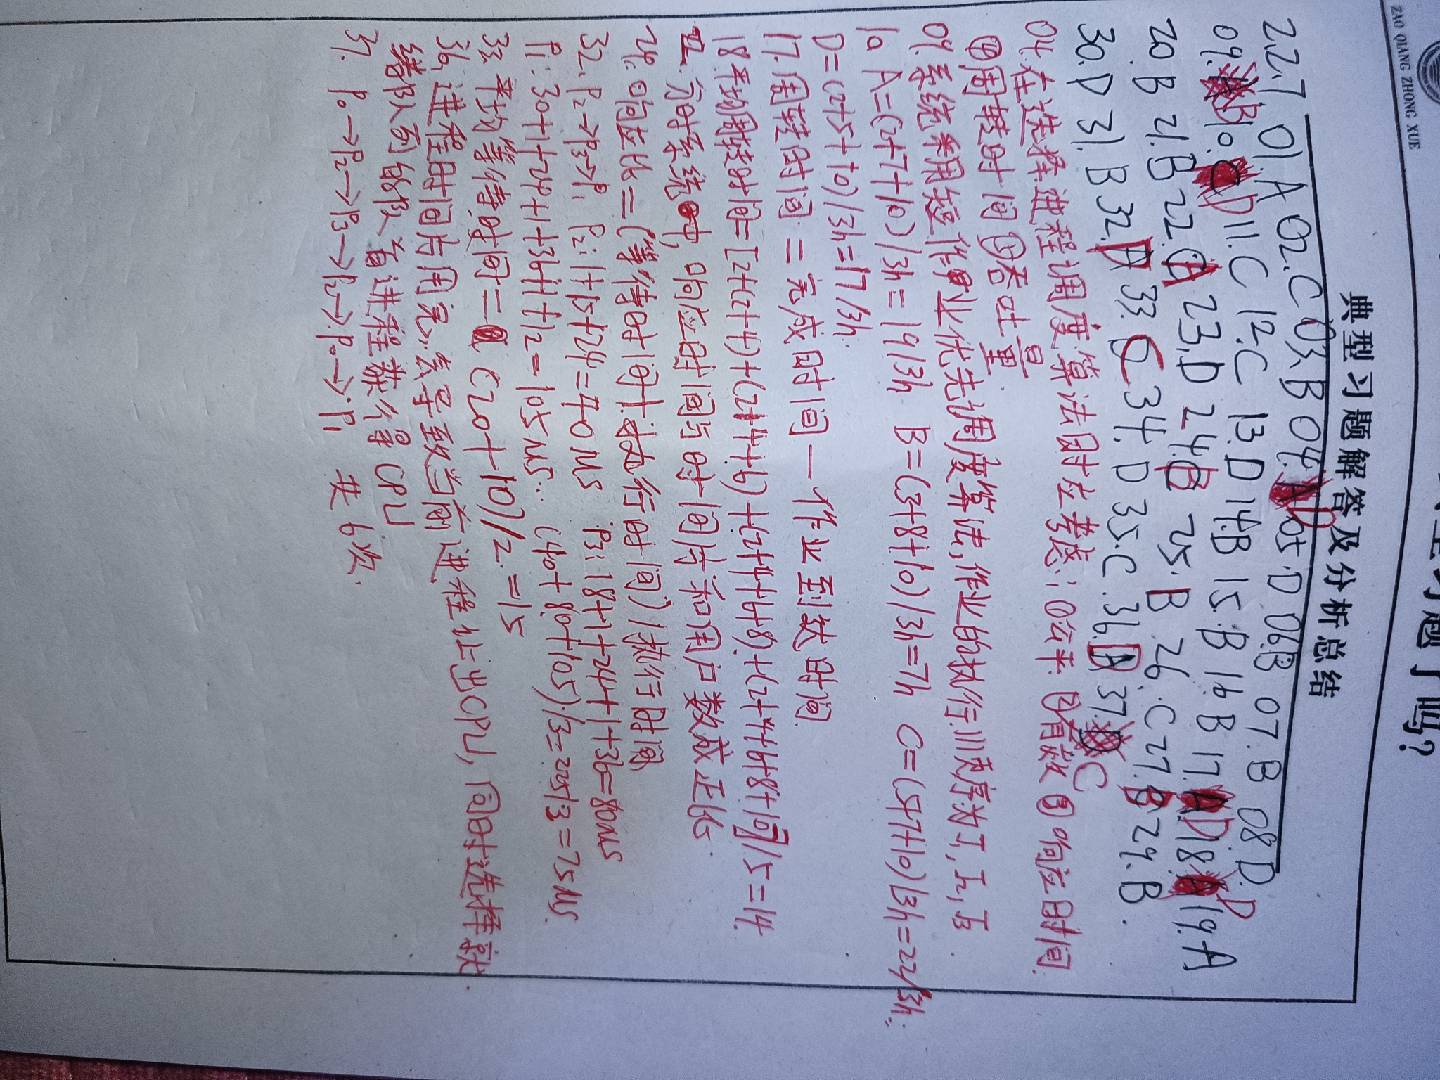 ZAO QIANG ZHONG XUE
习题了吗?
典型习题解答及分析总结
2.2.7 01.A 02.C 03.B 04. D 05.D 06.B 07.B 08.D.
09. B 10. D 11.C 12.C 13.D 14.B 15.B 16.B 17. D 18. D 19.A
20.B 21.B 22. A 23.D 24.B 25.B 26.C 27.B 29.B.
30.D 31.B 32. 33.C 34.D 35.C. 36. 37. C
04.在选择进程调度算法时应考虑:①公平 ②有效 ③响应时间
④周转时间 ⑤吞吐量.
09.系统采用短作业优先调度算法,作业的执行顺序为J1, J2, J3
10 A=(2+7+10)/3h=19/3h. B=(3+8+10)/3h=7h C=(5+7+10)/3h=22/3h.
D=(2+5+10)/3h=17/3h.
17.周转时间=完成时间-作业到达时间
18.平均周转时间=[2+(2+4)+(2+4+6)+(2+4+6+8)+(2+4+6+8+10)]/5=14.
22.分时系统中,响应时间与时间片和用户数成正比.
24.响应比=(等待时间+执行时间)/执行时间
32. P2→P3→P1 P2:1+15+24=40us P3:18+1+24+1+36=80us
P1:30+1+24+1+36+1+12=105us. (40+80+105)/3=225/3=75us.
33.平均等待时间=(20+10)/2=15
36,进程时间片用完,会导致当前进程让出CPU,同时选择就
绪队列的队首进程获得CPU
37. P0→P2→P3→P2→P0→P1 共6次.